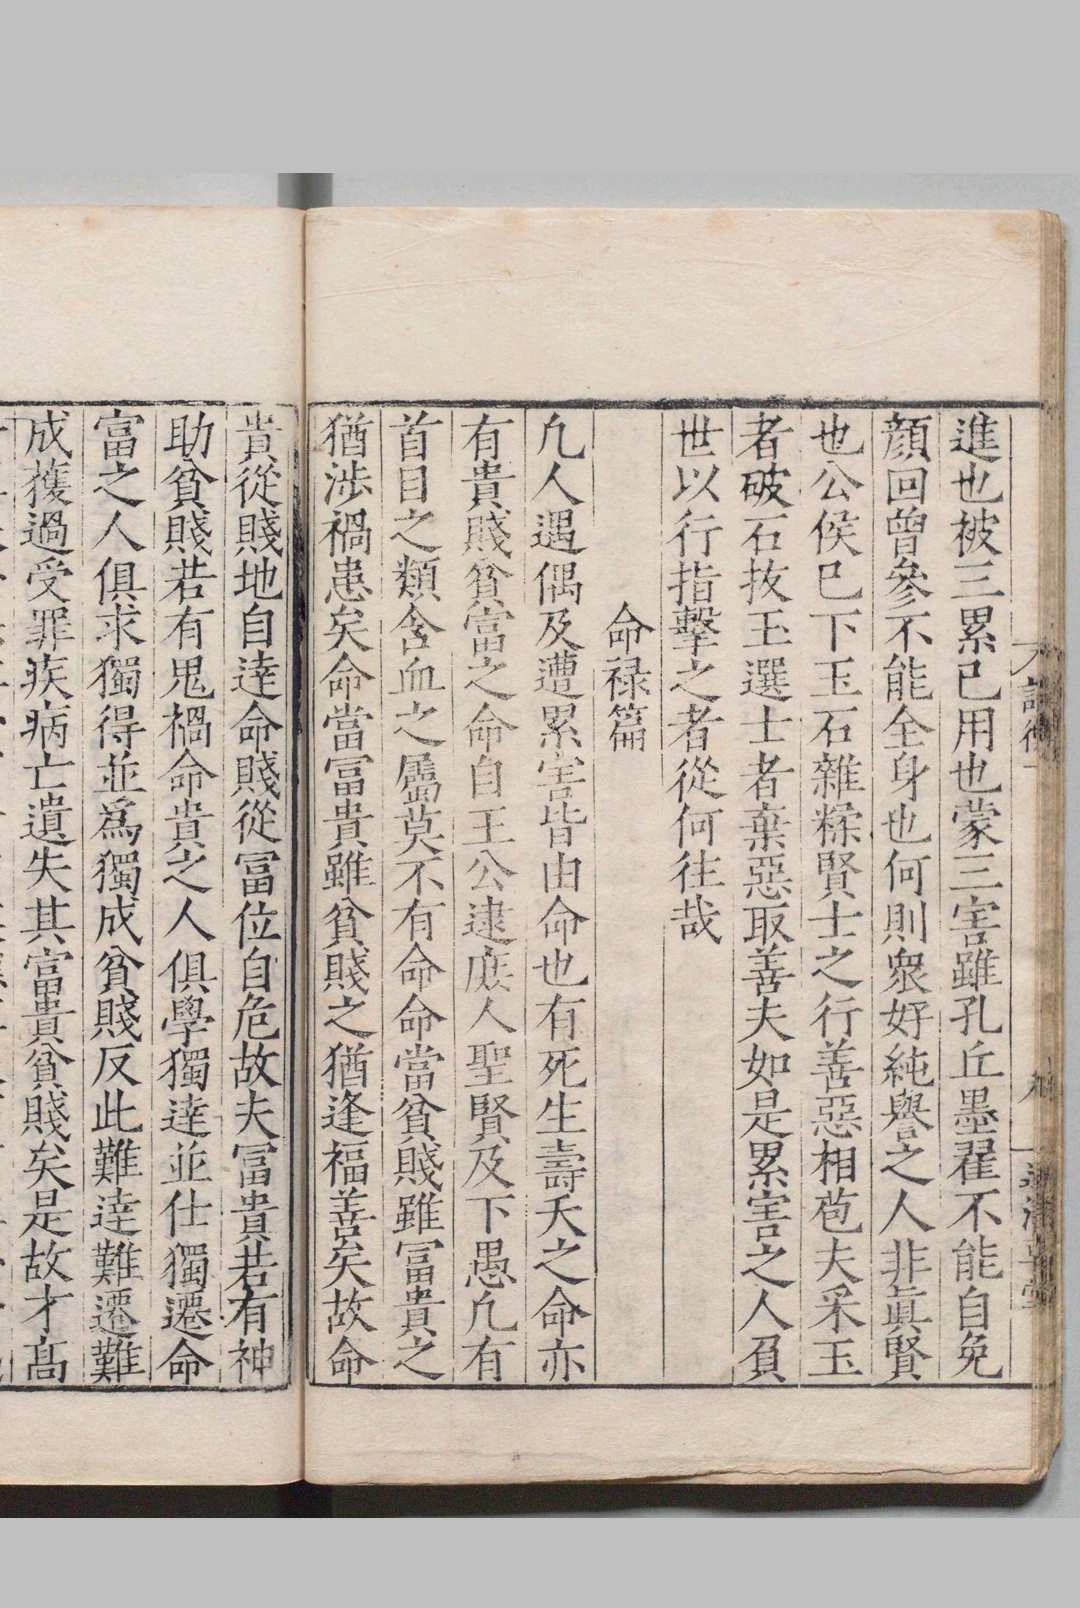 進也被三累已用也蒙三害雖孔丘墨翟不能自免
顔回曾參不能全身也何則衆好純譽之人非眞賢
也公侯已下玉石雜糅賢士之行善惡相苞夫采玉
者破石㧞玉選士者棄惡取善夫如是累害之人負
世以行指擊之者從何往哉
命禄篇
凢人遇偶及遭累害皆由命也有死生壽夭之命亦
有貴賤貧富之命自王公逮庶人聖賢及下愚凢有
首目之類含血之屬莫不有命命當貧賤雖冨貴之
猶涉禍患矣命當冨貴雖貧賤之猶逢福善矣故命
貴從賤地自達命賤從冨位自危故夫冨貴若有神
助貧賤若有鬼禍命貴之人俱學獨達並仕獨遷命
富之人俱求獨得並爲獨成貧賤反此難達難遷難
成獲過受罪疾病亡遺失其富貴貧賤矣是故才高